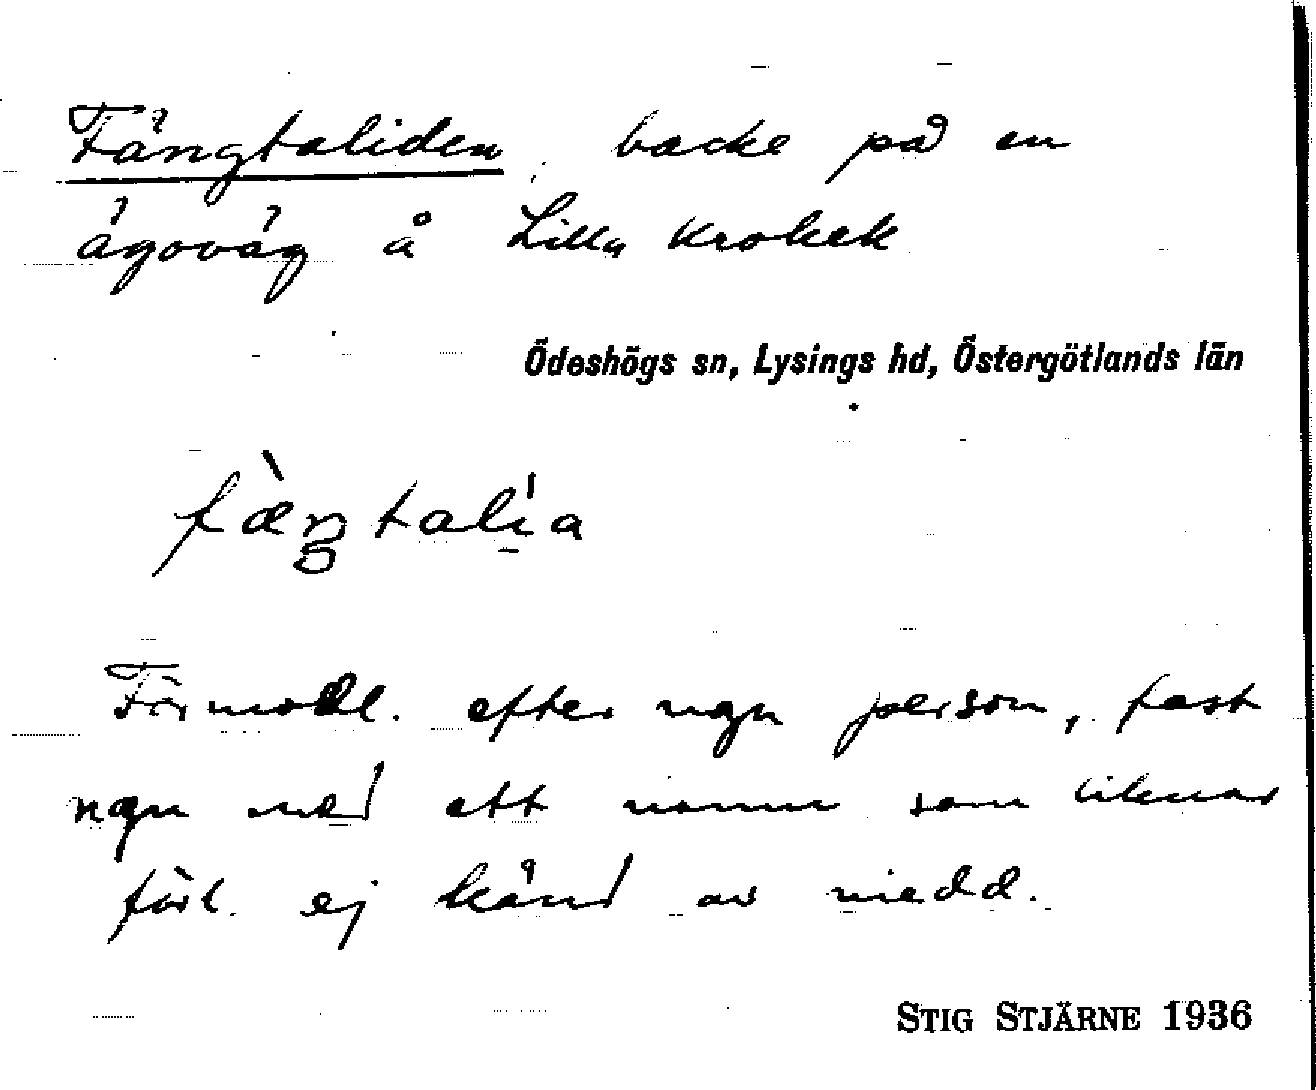 Fängtaliden, backe på en
ägoväg å Lilla Krokek
Ödeshögs sn, Lysings hd, Östergötlands län
fæ̀ŋtalía
Förmodl. efter ngn person, fast
ngn med ett namn som liknar
förl. ej känd av medd.
STIG STJÄRNE 1936